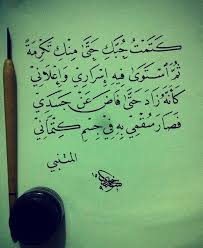 كَتَمْتُ حُبَّكِ حَتَّىٰ مِنْكِ تَكْرِمَةً
ثُمَّ اسْتَوَىٰ فِيهِ إِسْرَارِي وَإِعْلَانِي
كَأَنَّهُ زَادَ حَتَّىٰ فَاضَ عَنْ جَسَدِي
فَصَارَ سُقْمِي بِهِ فِي جِسْمِ كِتْمَانِي
المتنبي